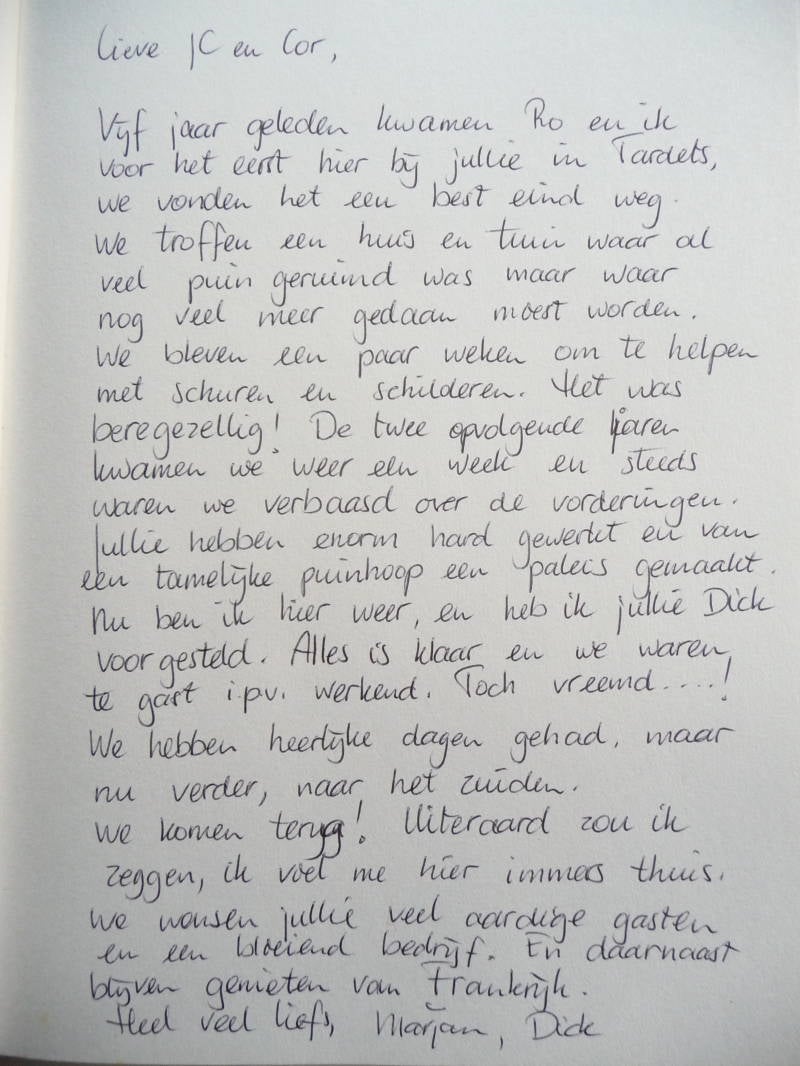 Lieve JC en Cor,
Vijf jaar geleden kwamen Ro en ik
voor het eerst hier bij jullie in Tardets,
we vonden het een best eind weg.
We troffen een huis en tuin waar al
veel puin geruimd was maar waar
nog veel meer gedaan moest worden.
We bleven een paar weken om te helpen
met schuren en schilderen. Het was
beregezellig! De twee opvolgende jaren
kwamen we weer een week en steeds
waren we verbaasd over de vorderingen.
Jullie hebben enorm hard gewerkt en van
een tamelijke puinhoop een paleis gemaakt.
Nu ben ik hier weer, en heb ik jullie Dick
voorgesteld. Alles is klaar en we waren
te gast i.p.v. werkend. Toch vreemd....!
We hebben heerlijke dagen gehad, maar
nu verder, naar het zuiden.
We komen terug! Uiteraard zou ik
zeggen, ik voel me hier immers thuis.
We wensen jullie veel aardige gasten
en een bloeiend bedrijf. En daarnaast
blijven genieten van Frankrijk.
Heel veel liefs, Marjan, Dick